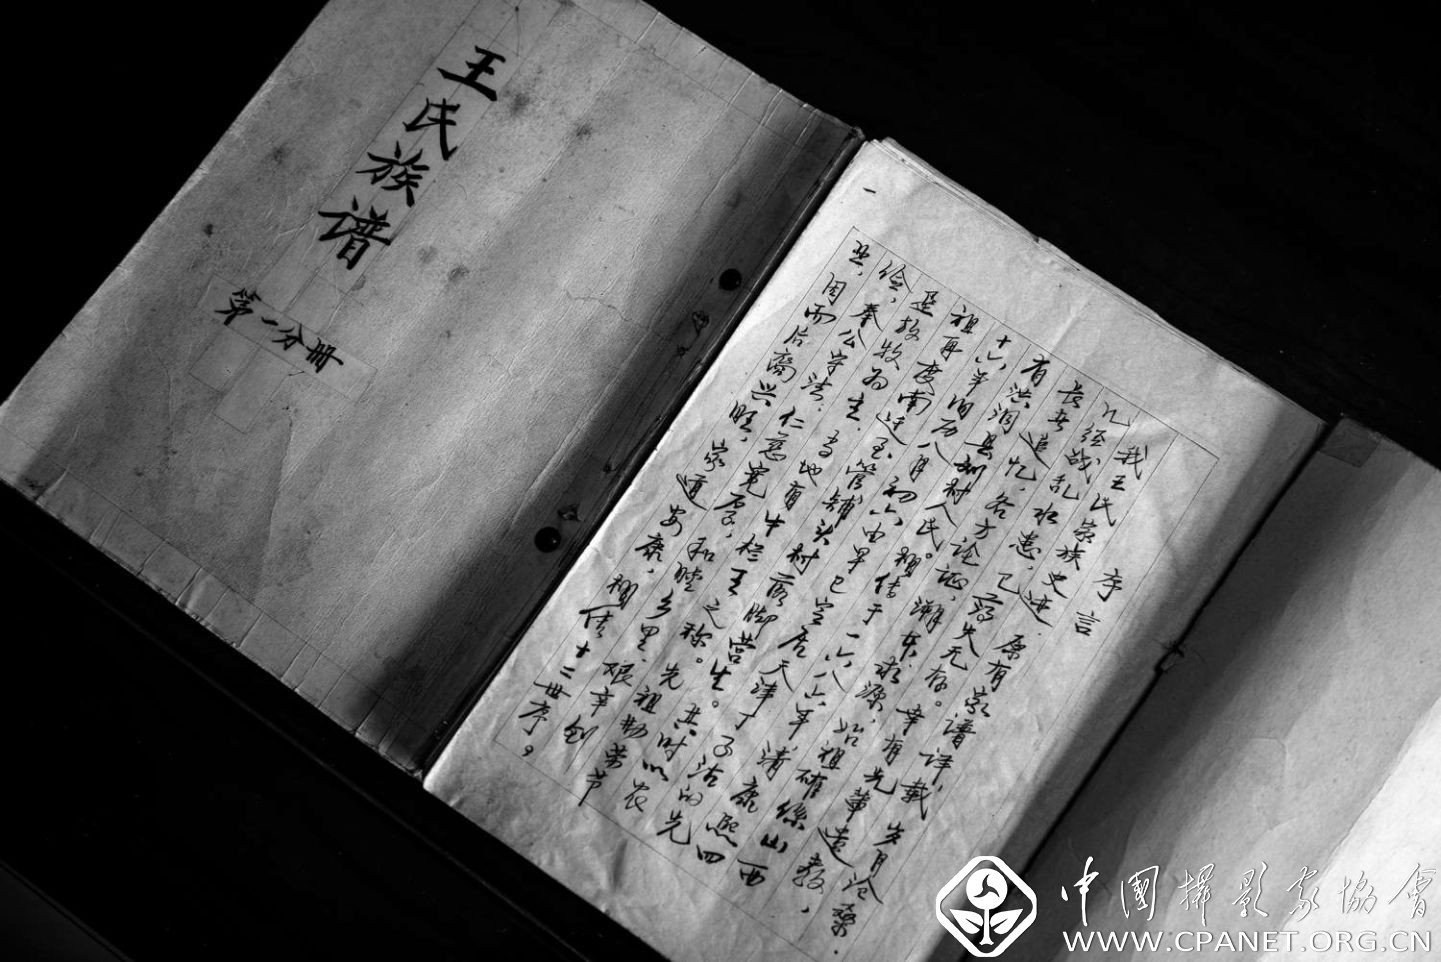 王氏族谱
第一分册
一
序言
我王氏家族史迹，原有家谱详载，岁月沧桑，
几经战乱水患，已荡失无存。幸有先辈遗教，
长者追忆，各方论证，溯本求源，始祖确系山西
省洪洞县刘村人民。相传于一六八六年清康熙四
十六年间历八月初六由早已定居天津丁字沽的先
祖再度南迁至管铺头村落脚营生。其时以农
垦放牧为主，当地有牛栏王之称。先祖勤劳节
俭，奉公守法，仁慈宽厚，和睦乡里，艰辛创
业，因而后裔兴旺，家道安康，相传十二世序。
中國攝影家協會
WWW.CPANET.ORG.CN